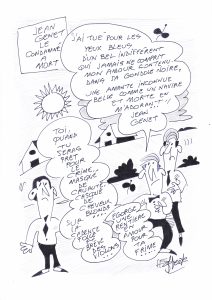 JEAN
GENET
LE
CONDAMNÉ
A
MORT
J'AI TUÉ POUR LES
YEUX BLEUS
D'UN BEL INDIFFÉRENT
QUI JAMAIS NE COMPRIT
MON AMOUR CONTENU,
DANS SA GONDOLE NOIRE,
UNE AMANTE INCONNUE
BELLE COMME UN NAVIRE
ET MORTE EN
M'ADORANT
JEAN
GENET
TOI,
QUAND
TU
SERAS
PRÊT
POUR
LE
CRIME,
MASQUÉ
DE
CRUAUTÉ
CASQUÉ
DE
CHEVEUX
BLONDS
SUR
LA
CADENCE
FOLLE
BRÈVE
DES
VIOLONS
ÉGORGE
UNE
RENTIÈRE
EN
AMOUR
POUR
TA
FRIME